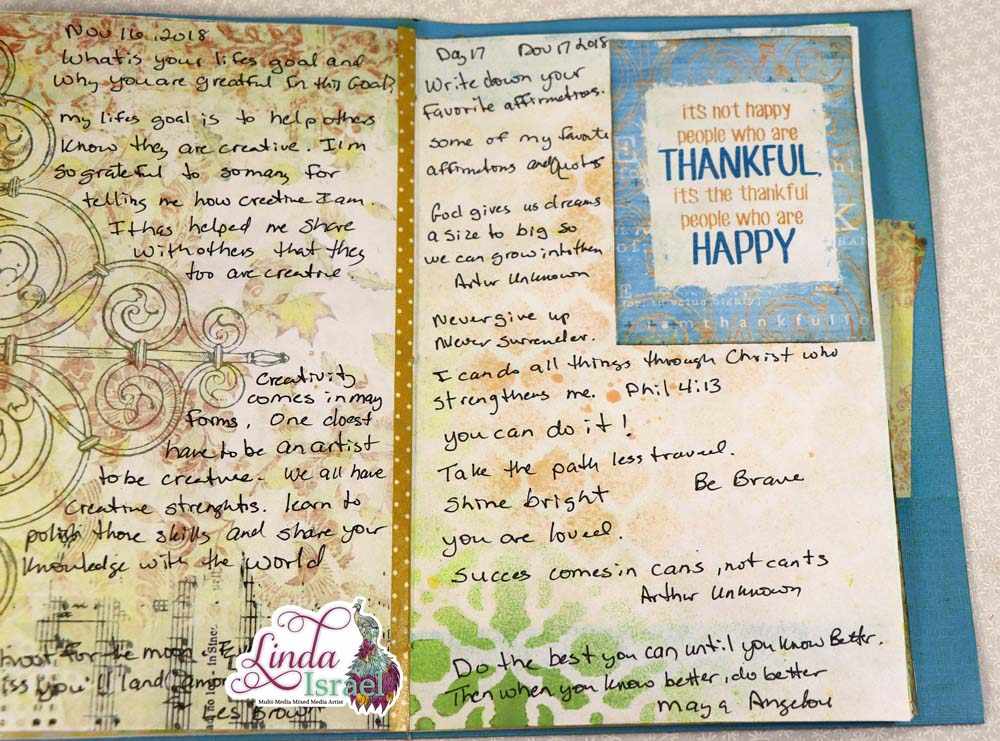 Nov 16, 2018
What is your lifes goal and
why you are greatful in this Goal?
my lifes goal is to help others
Know they are creative. I'm
so grateful to so many for
telling me how creative I am.
It has helped me share
with others that they
too are creative.
Creativity
comes in may
forms, One doest
have to be an artist
to be creative. We all have
Creative strenghts. learn to
polish those skills and share your
Knowledge with the world
for the moon
you'll land
Les Brown
Linda
Israel
Multi Media Mixed Media Artist
Day 17 Nov 17 2018
Write down your
Favorite affirmations.
some of my favorite
affirmations and Quotes
God gives us dreams
a size to big so
we can grow into them
Artur Unknown
Never give up
Never surrender.
I can do all things through Christ who
strengthens me. Phil 4:13
you can do it!
Take the path less travel.
Be Brave
Shine bright
you are loved.
Succes comes in cans, not cants
Arthur Unknown
Do the best you can until you know Better.
Then when you know better, do better
Maya Angelou
it's not happy
people who are
THANKFUL,
it's the thankful
people who are
HAPPY
iamthankfulfo